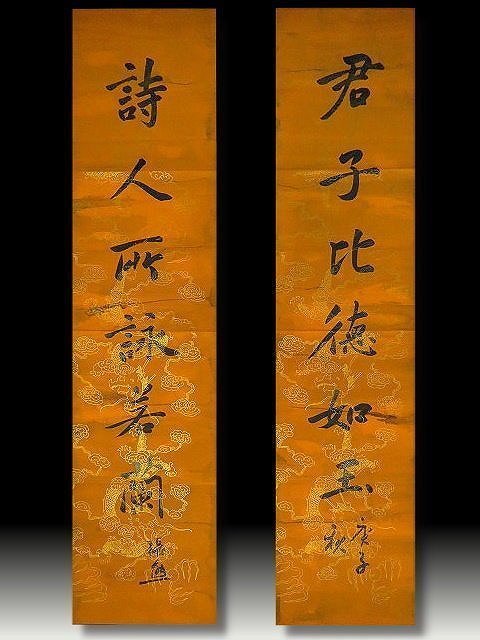 君子比德如玉
庚子
秋
詩人所詠若蘭